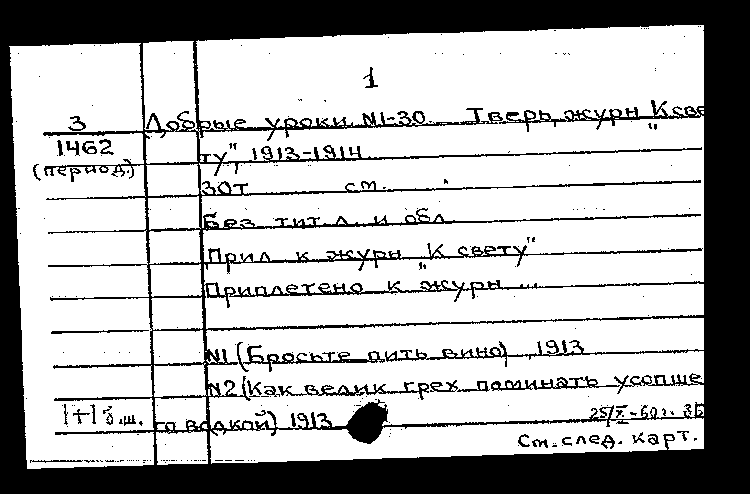 1
3 Добрые уроки. N1-30. Тверь, журн „К све
1462 ту", 1913-1914
(период.) 30т см.
Без тит. л. и обл.
Прил. к журн. „К свету"
Приплетено к журн. ...
N1 (Бросьте пить вино), 1913
N2 (Как велик грех поминать усопше
1+1 б.ш. го водкой) 1913 25/X-60г.
См. след. карт.